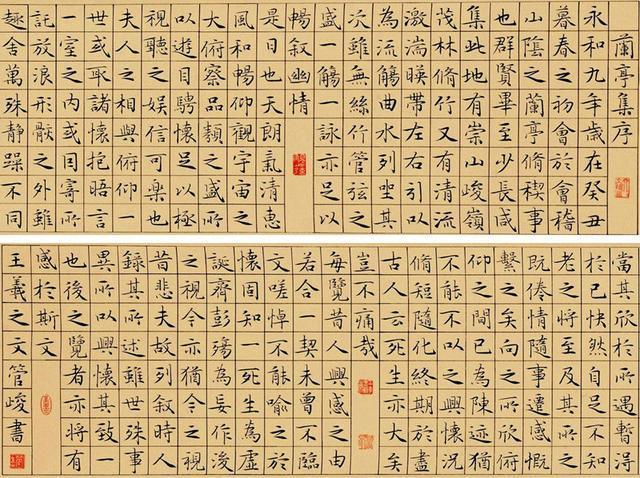 蘭亭集序
永和九年歲在癸丑
暮春之初會於會稽
山陰之蘭亭脩禊事
也群賢畢至少長咸
集此地有崇山峻嶺
茂林脩竹又有清流
激湍暎帶左右引以
為流觴曲水列坐其
次雖無絲竹管弦之
盛一觴一詠亦足以
暢叙幽情
是日也天朗氣清惠
風和暢仰觀宇宙之
大俯察品類之盛所
以遊目騁懷足以極
視聽之娛信可樂也
夫人之相與俯仰一
世或取諸懷抱晤言
一室之內或因寄所
託放浪形骸之外雖
趣舍萬殊靜躁不同
當其欣於所遇暫得
於己快然自足不知
老之將至及其所之
既倦情隨事遷感慨
繫之矣向之所欣俯
仰之間已為陳迹猶
不能不以之興懷況
脩短隨化終期於盡
古人云死生亦大矣
豈不痛哉
每覽昔人興感之由
若合一契未嘗不臨
文嗟悼不能喻之於
懷固知一死生為虛
誕齊彭殤為妄作後
之視今亦猶今之視
昔悲夫故列叙時人
錄其所述雖世殊事
異所以興懷其致一
也後之覽者亦將有
感於斯文
王羲之文管峻書